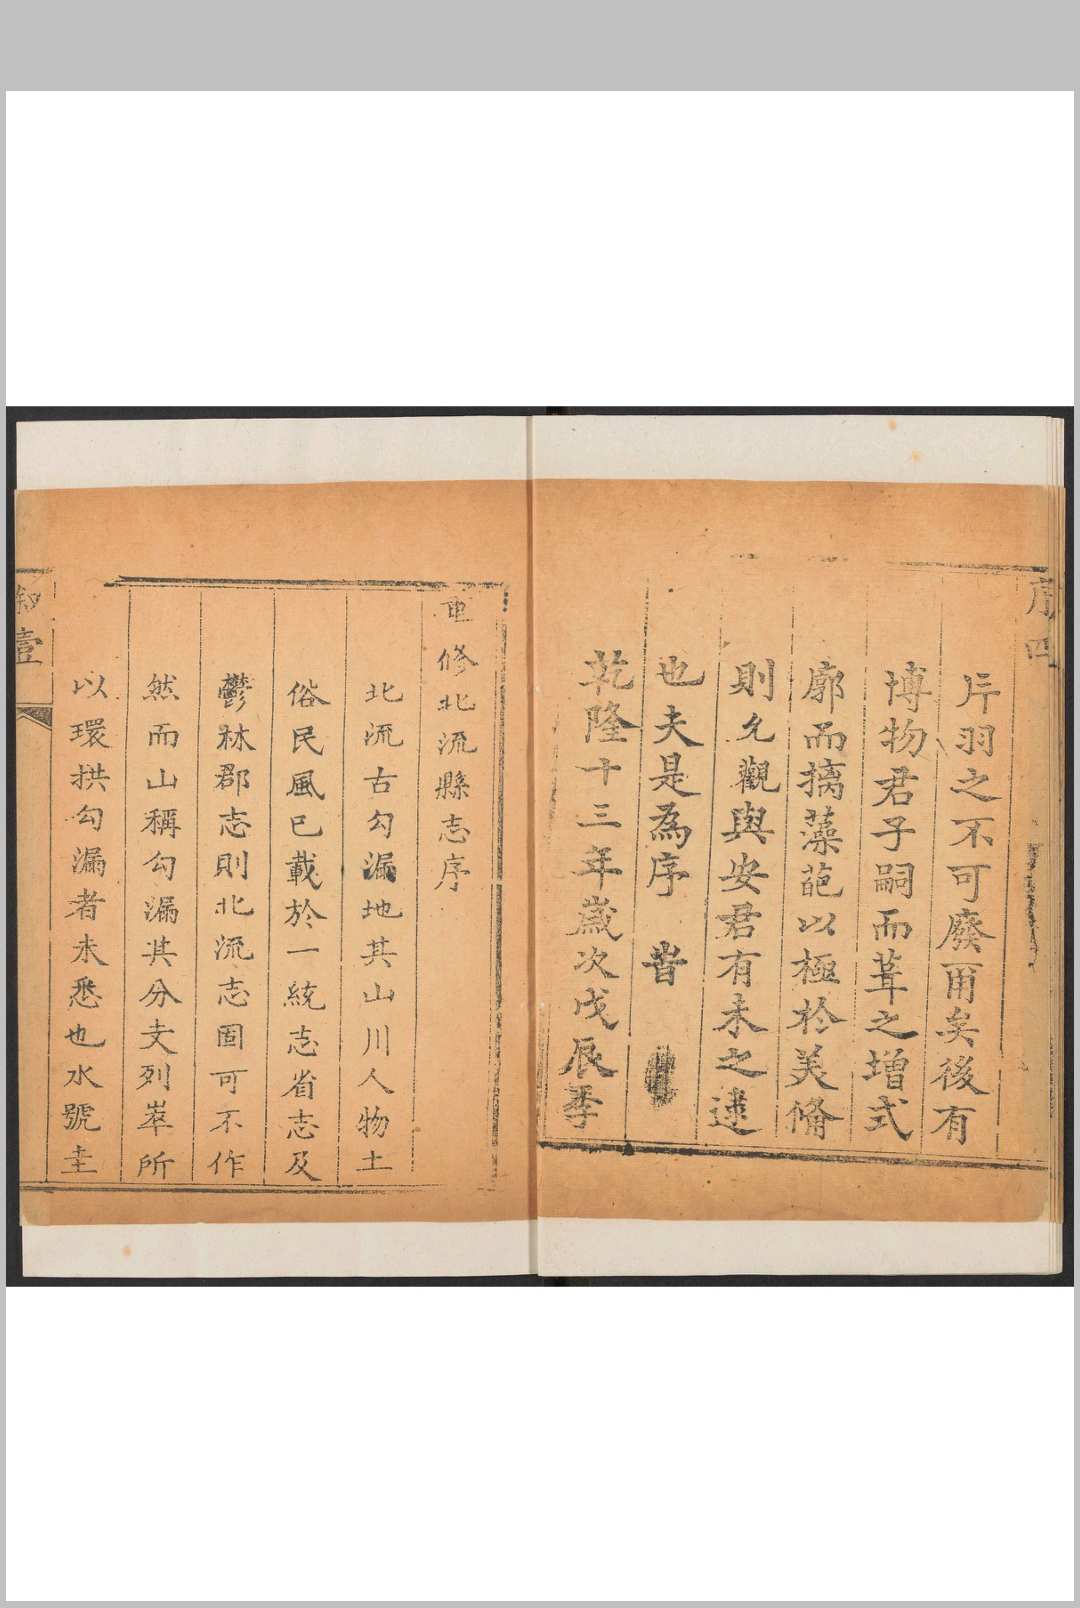 序四
片羽之不可廢甭矣後有
博物君子嗣而葺之增式
廓而摛藻葩以極於美脩
則允觀與安君有未之逮
也夫是為序 旹
乾隆十三年歲次戊辰季
重修北流縣志序
北流古勾漏地其山川人物土
俗民風已載於一統志省志及
鬱林郡志則北流志固可不作
然而山稱勾漏其分支列崒所
以環拱勾漏者未悉也水號圭
叙壹